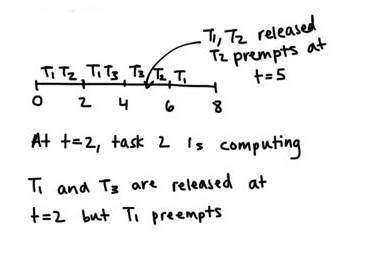 T₁, T₂ released
T₂ prempts at
t=5
T₁ T₂ T₁ T₃ T₃ T₂ T₁
0 2 4 6 8
At t=2, task 2 is computing
T₁ and T₃ are released at
t=2 but T₁ preempts